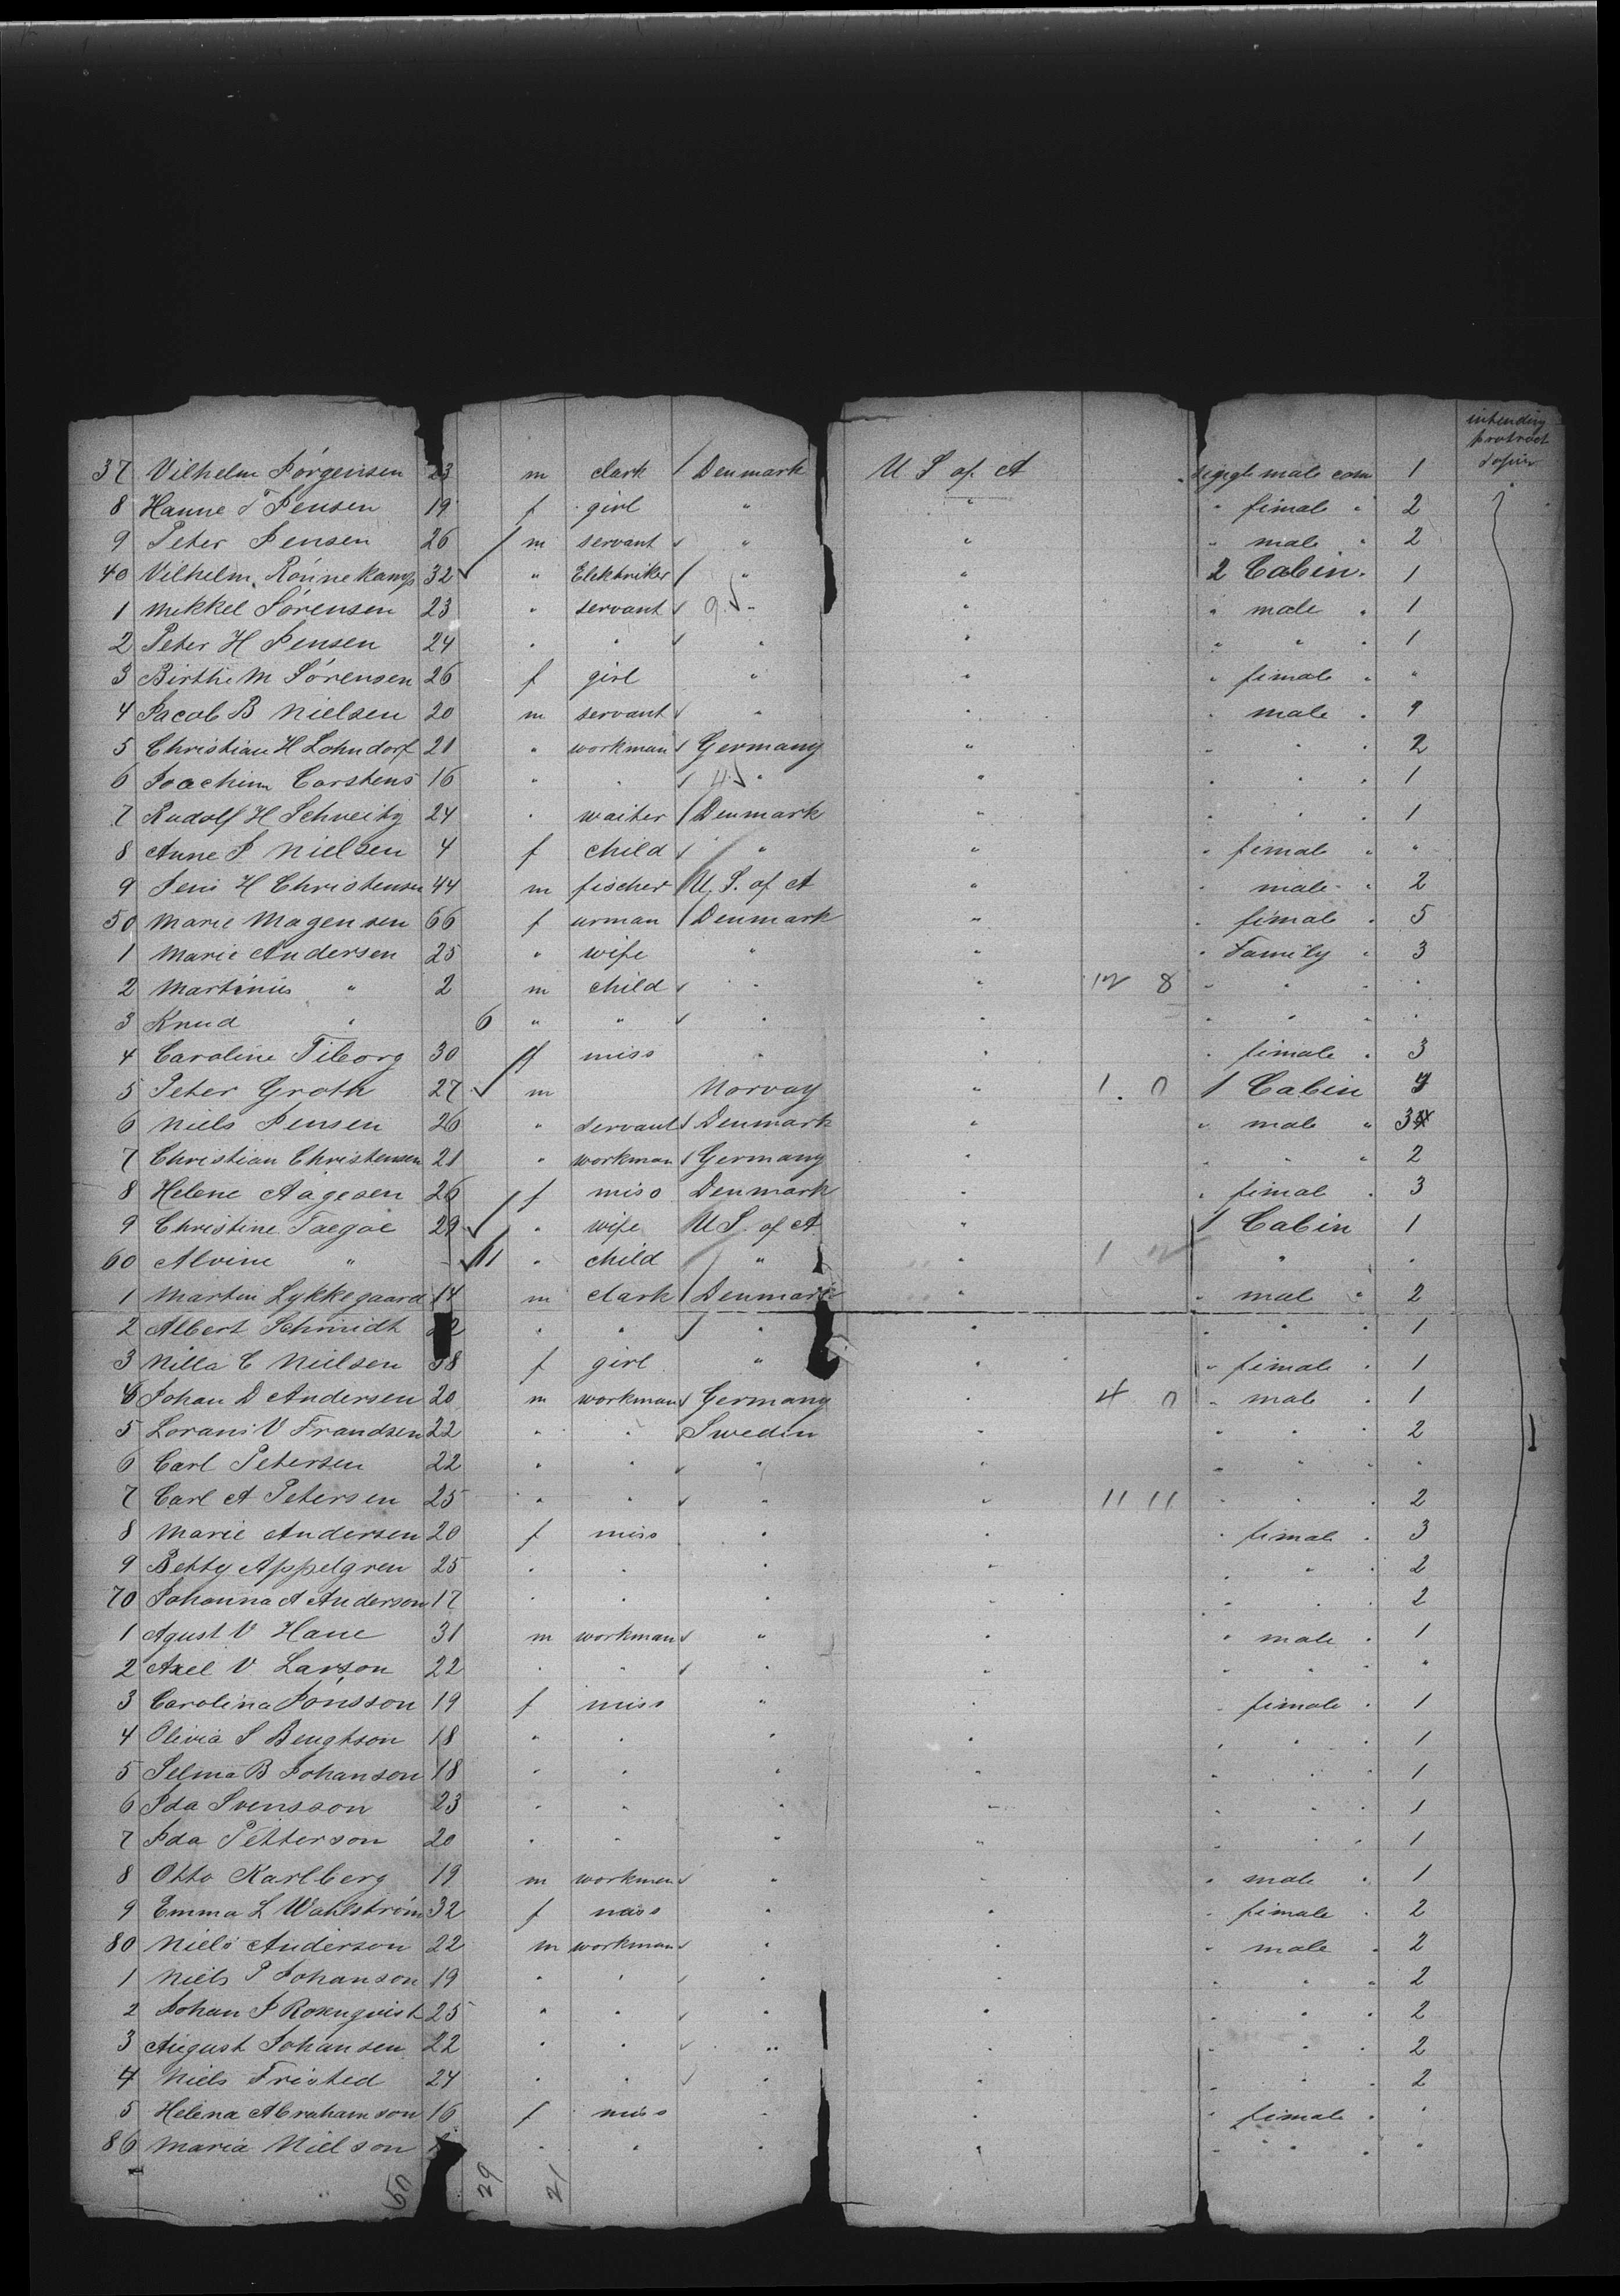 intending
protract
37 Vilhelm Jörgensen 23 m clark / Denmark U S of A single male com 1
8 Hanne T Jensen 19 f girl " " " fimale " 2
9 Peter Jensen 26 m servant " " " male " 2
40 Vilhelm Rönnekamp 32 " Elektriker / " " 2 Cabin 1
1 Mikkel Sörensen 23 " servant 9 " " " male " 1
2 Peter H Jensen 24 " " " " " " " 1
3 Birthe M Sörensen 26 f girl " " " fimale " "
4 Jacob B Nielsen 20 m servant " " " male " 1
5 Christian H Lohndorf 21 " workman Germany " " " " 2
6 Joachim Carstens 16 " " 4 " " " " " 1
7 Rudolf H Schweitz 24 " waiter / Denmark " " " " 1
8 Anne P Nielsen 4 f child " " " fimale " "
9 Jens H Christensen 44 m fischer / U. S. of A " " male " 2
50 Marie Magensen 66 f urman / Denmark " " fimale " 5
1 Marie Andersen 25 " wife " " " Family " 3
2 Martinus " 2 m child " " 12 8 " " " "
3 Knud " 6 " " " " " " " "
4 Caroline Tiborg 30 f miss " " " fimale " 3
5 Peter Groth 27 m Norvay " 1. 0 1 Cabin 7
6 Niels Jensen 26 " servant Denmark " " male " 3
7 Christian Christensen 21 " workman / Germany " " " " 2
8 Helene Aagesen 26 f miss Denmark " " fimale " 3
9 Christine Taegae 29 " wife U S. of A " 1 Cabin 1
60 Alvine " 11 " child " " 1 " "
1 Martin Lykkegaard 14 m clark / Denmark " " male " 2
2 Albert Schmidt 22 " " / " " " " " 1
3 Nilla C Nielsen 38 f girl " " " fimale " 1
4 Johan D Andersen 20 m workman Germany " 4 0 " male " 1
5 Lorans V Frandsen 22 " " Sweden " " " " 2
6 Carl Petersen 22 " " " " " " " "
7 Carl A Petersen 25 " " " " 11 11 " " " 2
8 Marie Andersen 20 f miss " " " fimale " 3
9 Betty Appelgren 25 " " " " " " " 2
70 Johanna A Anderson 17 " " " " " " " 2
1 Agust V Hane 31 m workman " " " male " 1
2 Axel V Larson 22 " " " " " " " "
3 Carolina Jónsson 19 f miss " " " fimale " 1
4 Olivia S Bengtson 18 " " " " " " " 1
5 Selma B Johanson 18 " " " " " " " 1
6 Ida Svensson 23 " " " " " " " 1
7 Ida Petterson 20 " " " " " " " 1
8 Otto Karlberg 19 m workmen " " " male " 1
9 Emma L Wahlström 32 f miss " " " fimale " 2
80 Niels Anderson 22 m workman " " " male " 2
1 Niels P Johanson 19 " " " " " " " 2
2 Johan P Rosenqvist 25 " " " " " " " 2
3 August Johansen 22 " " " " " " " 2
4 Niels Fristed 24 " " " " " " " 2
5 Helena Abrahamson 16 f miss " " " fimale " "
86 Maria Nielson " " " " " " " "
50 29 21